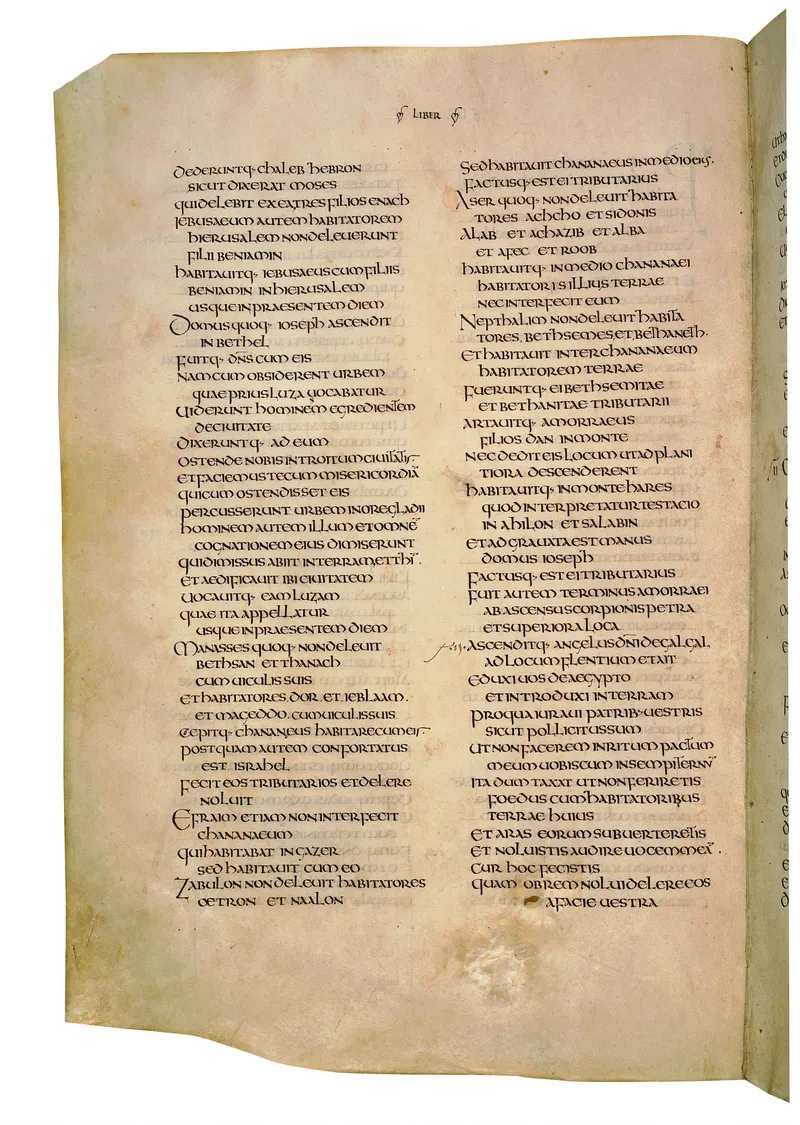 LIBER
DEDERUNTQ· CHALEB HEBRON
SICUT DIXERAT MOSES
QUI DELEBIT EX EA TRES FILIOS ENACH
IEBUSAEUM AUTEM HABITATOREM
HIERUSALEM NON DELEUERUNT
FILII BENIAMIN
HABITAUITQ· IEBUSAEUS CUM FILIIS
BENIAMIN IN HIERUSALEM
USQUE IN PRAESENTEM DIEM
DOMUS QUOQ· IOSEPH ASCENDIT
IN BETHEL
FUITQ· DN̄S CUM EIS
NAM CUM OBSIDERENT URBEM
QUAE PRIUS LUZA UOCABATUR
UIDERUNT HOMINEM EGREDIENTEM
DE CIUITATE
DIXERUNTQ· AD EUM
OSTENDE NOBIS INTROITUM CIUITATIS
ET FACIEMUS TECUM MISERICORDIĀ
QUI CUM OSTENDISSET EIS
PERCUSSERUNT URBEM IN ORE GLADII
HOMINEM AUTEM ILLUM ET OMNĒ
COGNATIONEM EIUS DIMISERUNT
QUI DIMISSUS ABIIT IN TERRAM ETTHĪ·
ET AEDIFICAUIT IBI CIUITATEM
UOCAUITQ· EAM LUZAM
QUAE ITA APPELLATUR
USQUE IN PRAESENTEM DIEM
MANASSES QUOQ· NON DELEUIT
BETHSAN ET THANACH
CUM UICULIS SUIS
ET HABITATORES· DOR· ET· IEBLAAM·
ET MAGEDDO· CUM UICULIS SUIS
CEPITQ· CHANANEUS HABITARE CUM EIS
POSTQUAM AUTEM CONFORTATUS
EST ISRAHEL
FECIT EOS TRIBUTARIOS ET DELERE
NOLUIT
EFRAIM ETIAM NON INTERFECIT
CHANANAEUM
QUI HABITABAT IN GAZER
SED HABITAUIT CUM EO
ZABULON NON DELEUIT HABITATORES
CETRON ET NAALON
SED HABITAUIT CHANANAEUS IN MEDIO EIUS·
FACTUSQ· EST EI TRIBUTARIUS
ASER QUOQ· NON DELEUIT HABITA
TORES ACHCHO ET SIDONIS
ALAB ET ACHAZIB ET ALBA
ET AFEC ET ROOB
HABITAUITQ· IN MEDIO CHANANAEI
HABITATORIS ILLIUS TERRAE
NEC INTERFECIT EUM
NEPTHALIM NON DELEUIT HABITA
TORES· BETHSEMES· ET· BETHANETH·
ET HABITAUIT INTER CHANANAEUM
HABITATOREM TERRAE
FUERUNTQ· EI BETHSEMITAE
ET BETHANITAE TRIBUTARII
ARTAUITQ· AMORRAEUS
FILIOS DAN IN MONTE
NEC DEDIT EIS LOCUM UT AD PLANI
TIORA DESCENDERENT
HABITAUITQ· IN MONTE HARES
QUOD INTERPRETATUR TESTACIO
IN AHILON ET SALABIN
ET ADGRAUATA EST MANUS
DOMUS IOSEPH
FACTUSQ· EST EI TRIBUTARIUS
FUIT AUTEM TERMINUS AMORRAEI
AB ASCENSU SCORPIONIS PETRA
ET SUPERIORA LOCA
ASCENDITQ· ANGELUS DN̄I DE GALGAL
AD LOCUM FLENTIUM ET AIT
EDUXI UOS DE AEGYPTO
ET INTRODUXI IN TERRAM
PRO QUA IURAUI PATRIB· UESTRIS
SICUT POLLICITUS SUM
UT NON FACEREM INRITUM PACTUM
MEUM UOBISCUM IN SEMPITERNŪ
ITA DUMTAXAT UT NON FERIRETIS
FOEDUS CUM HABITATORIBUS
TERRAE HUIUS
ET ARAS EORUM SUBUERTERETIS
ET NOLUISTIS AUDIRE UOCEM MEĀ·
CUR HOC FECISTIS
QUAM OBREM NOLUI DELERE EOS
A FACIE UESTRA